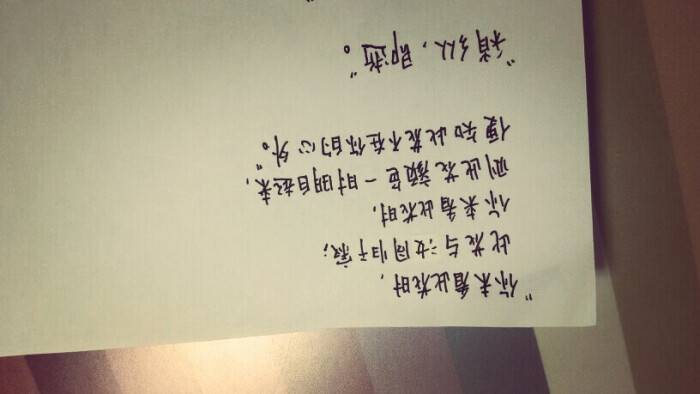 “你未看此花时，
此花与汝同归于寂；
你来看此花时，
则此花颜色一时明白起来，
便知此花不在你的心外。”
“稍纵，即逝。”